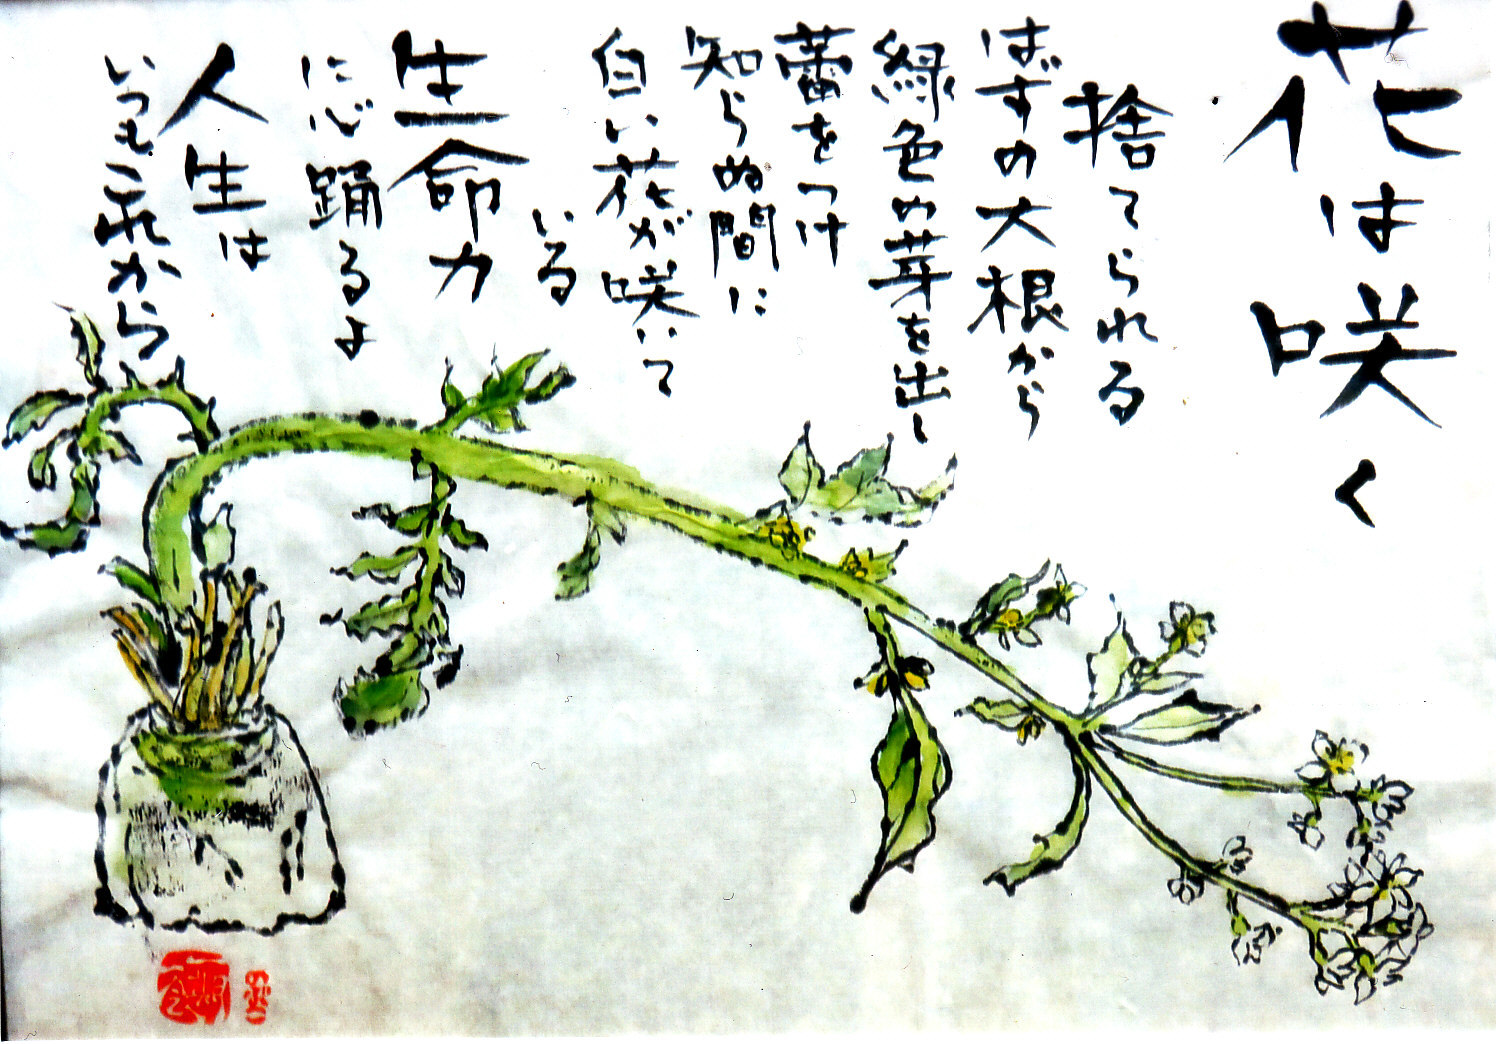 花は咲く
捨てられる
はずの大根から
緑色の芽を出し
蕾をつけ
知らぬ間に
白い花が咲いて
いる
生命力
に心踊るよ
人生は
いつもこれから